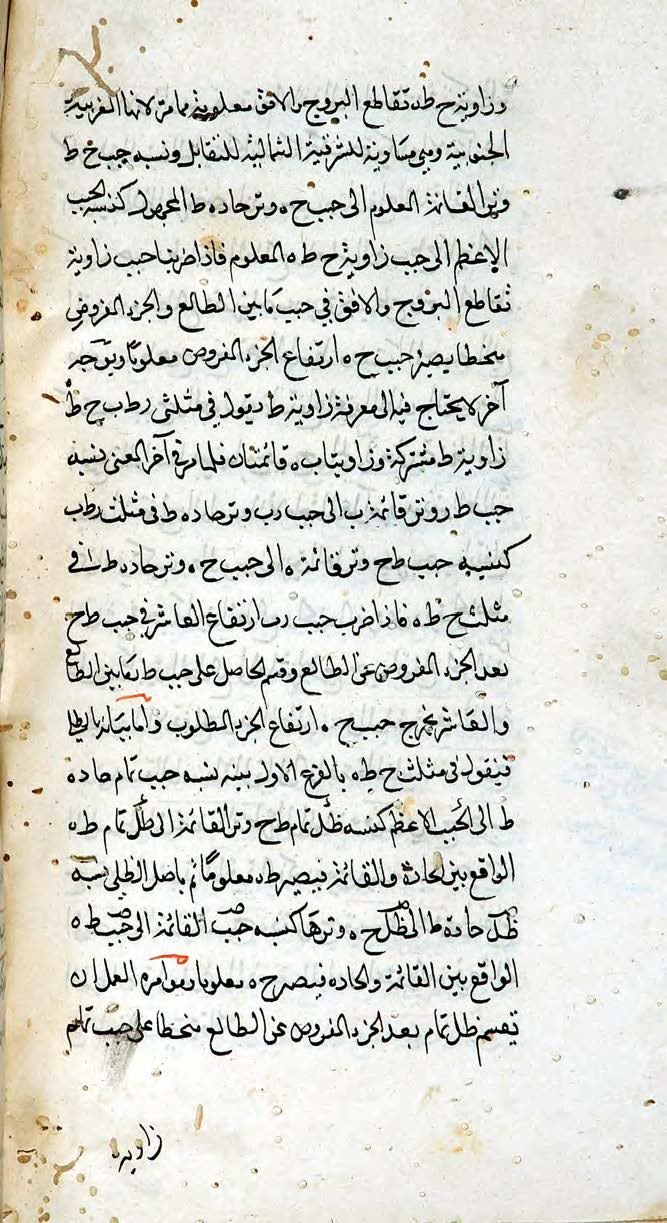 وزاوية ح ط ه تقاطع البروج والافق معلومة مما مر لانها الغربية
الجنوبية وهي مساوية للشرقية الشمالية للتقابل ونسبة جيب ح ط
وتر القائمة المعلوم الى جيب ح ه وتر حادة ط المجهول كنسبة الجيب
الاعظم الى جيب زاوية ح ط ه المعلوم فاذا ضربنا جيب زاوية
تقاطع البروج والافق في جيب ما بين الطالع والجزء المفروض
منحطا يصير جيب ح ه ارتفاع الجزء المفروض معلوما وبوجه
آخر لا يحتاج فيه الى معرفة زاوية ط ه يقول في مثلثي ر ط ب ح ط ه
زاوية ط مشتركة وزاويتا ب ه قائمتان فلما مر في آخر المغني نسبة
جيب ط ر وتر قائمة ب الى جيب ر ب وتر حادة ط في مثلث ر ط ب
كنسبة جيب ط ح وتر قائمة ه الى جيب ح ه وتر حادة ط في
مثلث ح ط ه فاذا ضرب جيب ر ب ارتفاع العاشر في جيب ط ح
بعد الجزء المفروض عن الطالع وقسم الحاصل على جيب ط ر ما بين الطالع
والعاشر يخرج جيب ح ه ارتفاع الجزء المطلوب واما بيانه بالظلي
فيقول في مثلث ح ط ه بالفرع الاول بينه نسبة جيب تمام حادة
ط الى الجيب الاعظم كنسبة ظل تمام ط ح وتر القائمة الى ظل تمام ط ه
الواقع بين الحادة والقائمة فيصير ط ه معلوما ثم باصل الظلي نسبة
ظل حادة ط الى ظل ح ه وترها كنسبة جيب القائمة الى جيب ط ه
الواقع بين القائمة والحادة فيصير ح ه معلوما ومؤامرة العمل ان
تقسم ظل تمام بعد الجزء المفروض عن الطالع منحطا على جيب تمام
زاوية